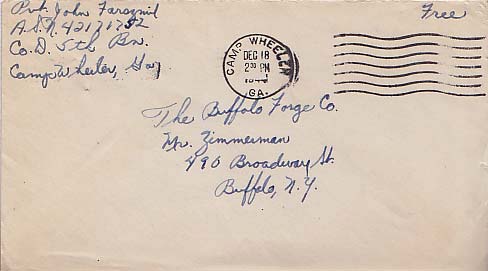 Pvt. John
A.S.N. 42131752
Co. D. 5th Bn.
Camp Wheeler, Ga.
Free
CAMP WHEELER
DEC 18
2 PM
GA.
The Buffalo Forge Co.
Mr. Zimmerman
490 Broadway St.
Buffalo, N.Y.